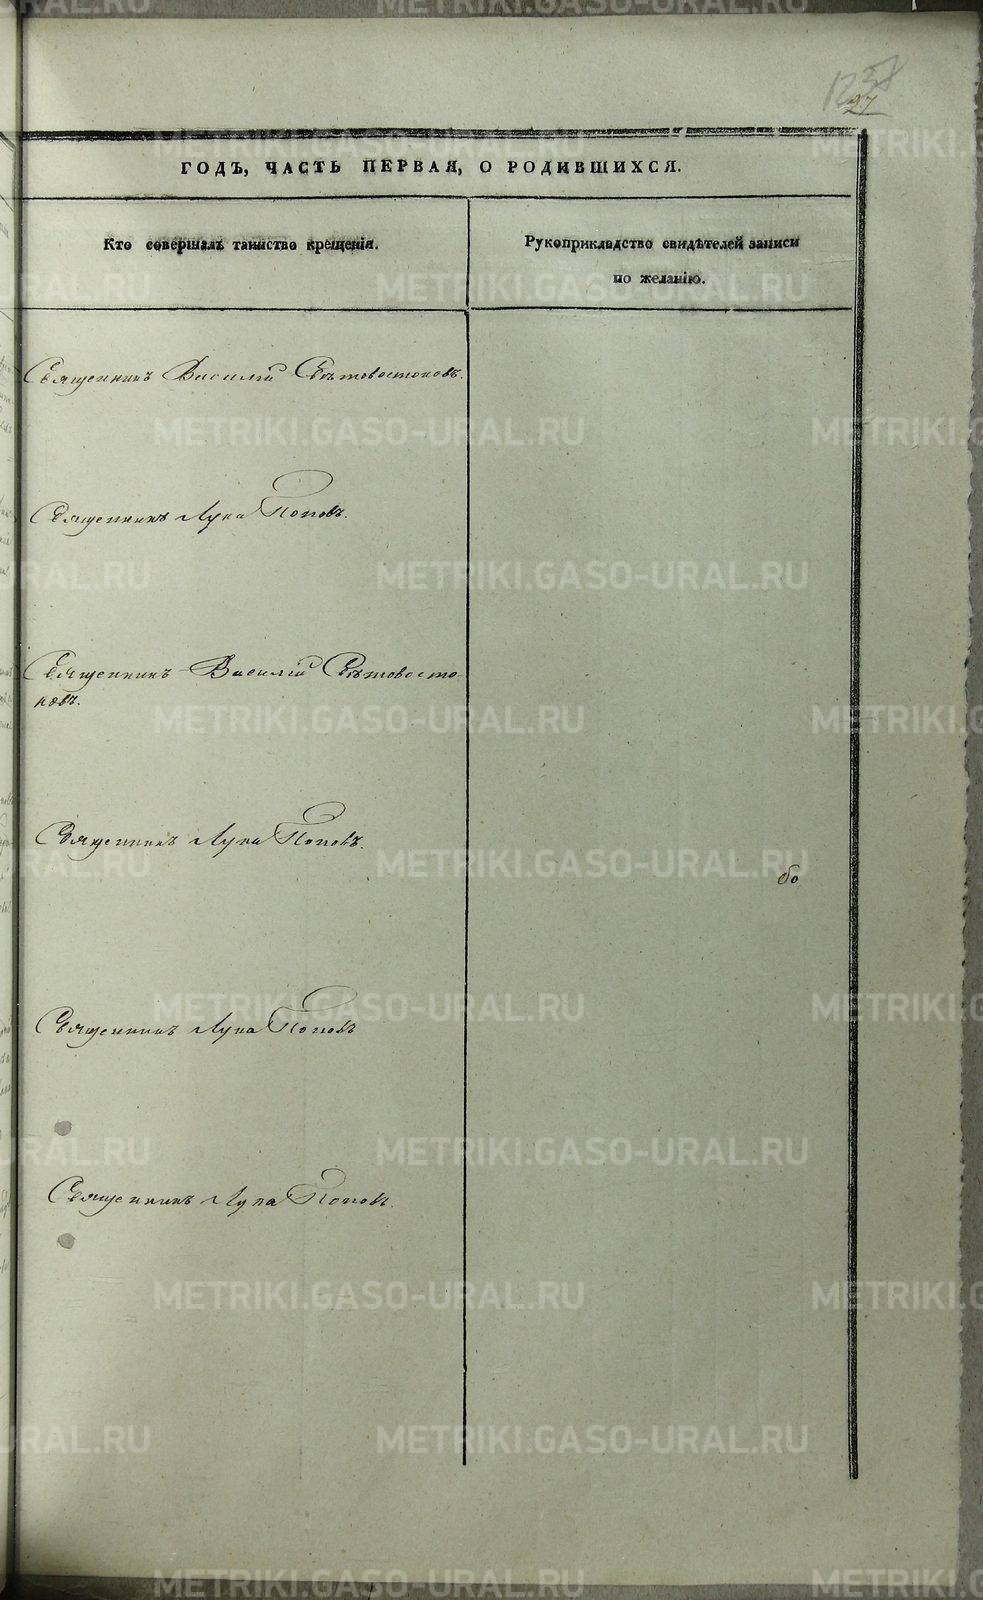 27
ГОДЪ, ЧАСТЬ ПЕРВАЯ, О РОДИВШИХСЯ.
Кто совершалъ таинство крещенія.
Рукоприкладство свидѣтелей записи
по желанію.
Священникъ Василій Свѣтовостоковъ.
Священникъ Лука Поповъ.
Священникъ Василій Свѣтовосто-
ковъ.
Священникъ Лука Поповъ.
бо
Священникъ Лука Поповъ
Священникъ Лука Поповъ.
METRIKI.GASO-URAL.RU